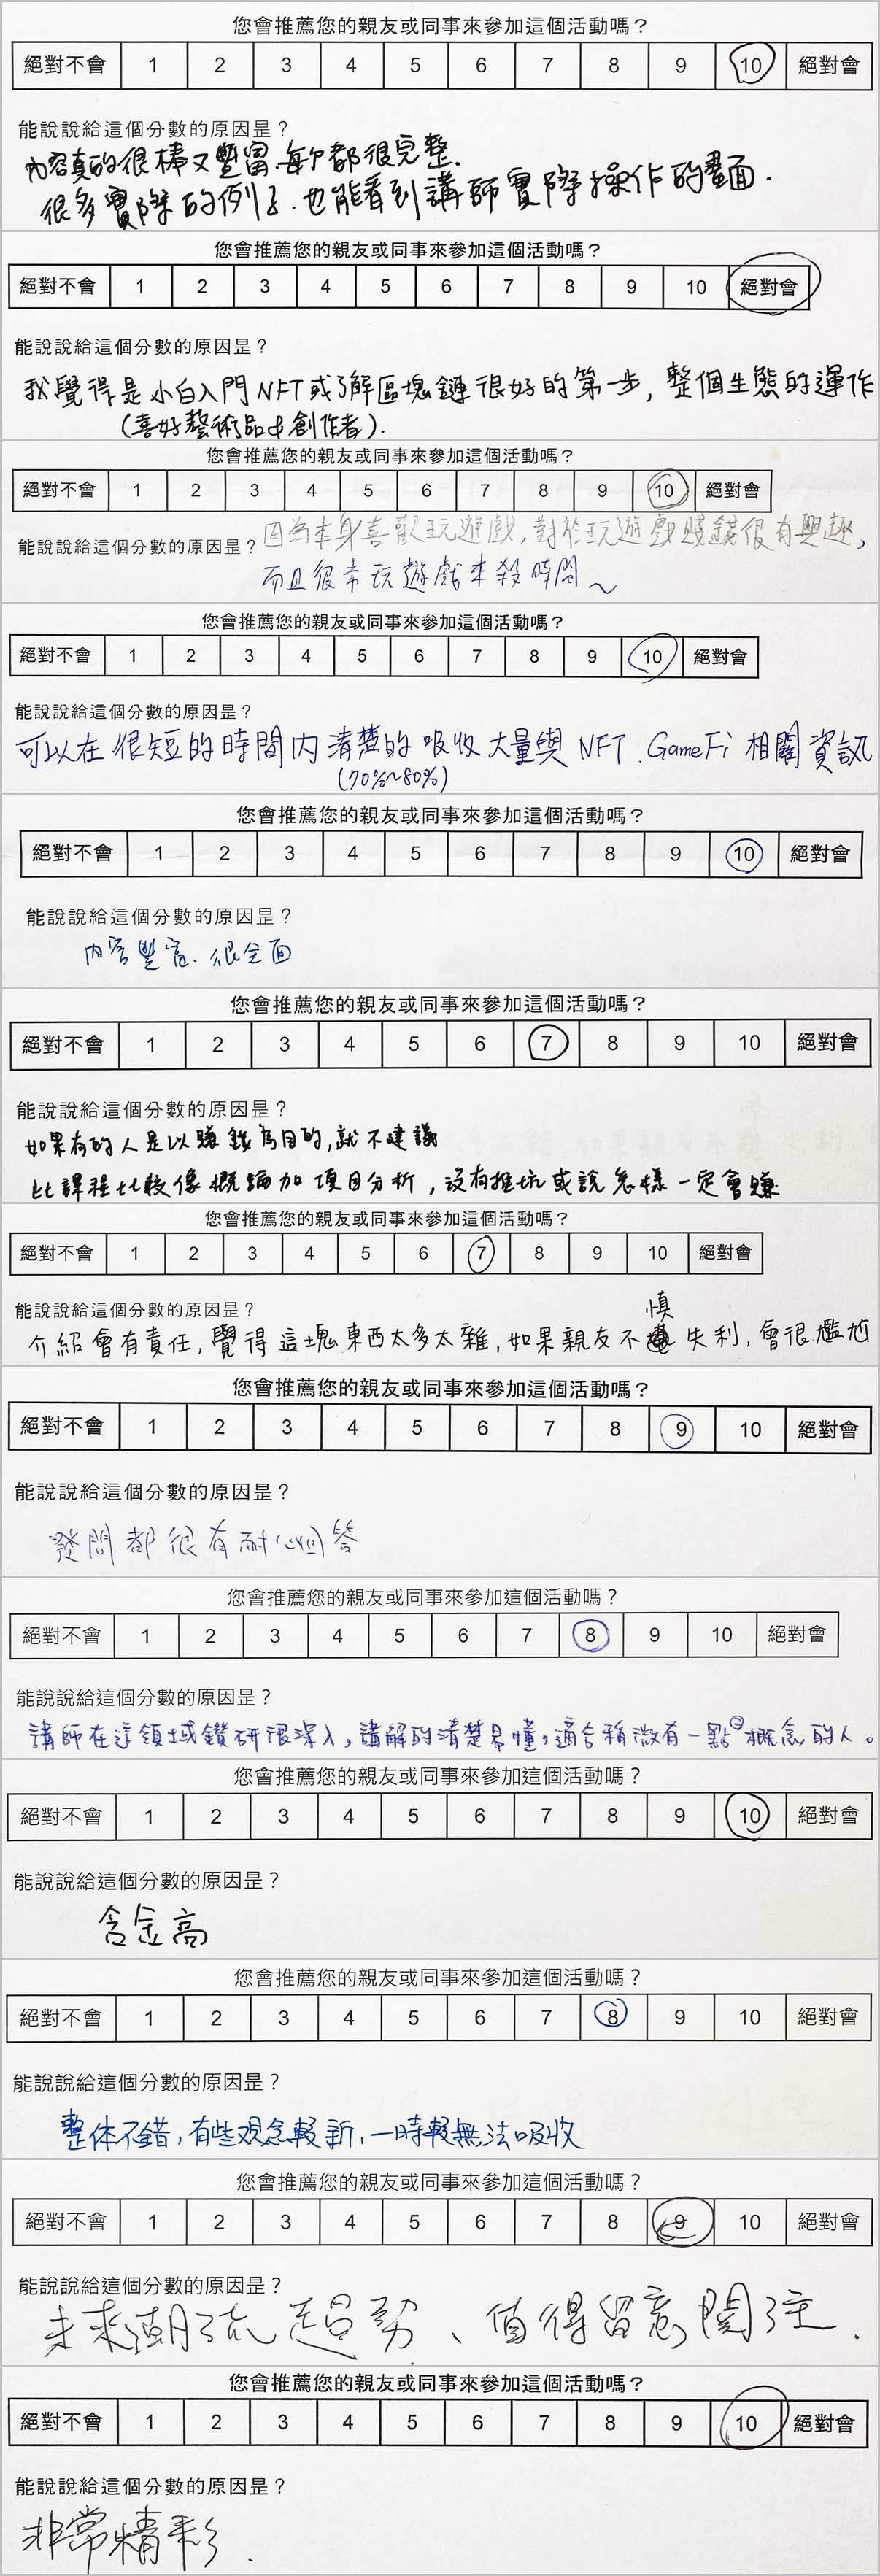 您會推薦您的親友或同事來參加這個活動嗎？
絕對不會 1 2 3 4 5 6 7 8 9 10 絕對會
能說說給這個分數的原因昰？
內容真的很棒又豐富.每個都很完整.
很多實際的例子.也能看到講師實際操作的畫面.
您會推薦您的親友或同事來參加這個活動嗎？
絕對不會 1 2 3 4 5 6 7 8 9 10 絕對會
能說說給這個分數的原因昰？
我覺得是小白入門NFT或了解區塊鏈很好的第一步，整個生態的運作
(喜好藝術品&創作者).
您會推薦您的親友或同事來參加這個活動嗎？
絕對不會 1 2 3 4 5 6 7 8 9 10 絕對會
能說說給這個分數的原因昰？因為本身喜歡玩遊戲，對於玩遊戲賺錢很有興趣，
而且很常玩遊戲來殺時間～
您會推薦您的親友或同事來參加這個活動嗎？
絕對不會 1 2 3 4 5 6 7 8 9 10 絕對會
能說說給這個分數的原因昰？
可以在很短的時間內清楚的吸收大量與 NFT、GameFi 相關資訊
(70%~80%)
您會推薦您的親友或同事來參加這個活動嗎？
絕對不會 1 2 3 4 5 6 7 8 9 10 絕對會
能說說給這個分數的原因昰？
內容豐富、很全面
您會推薦您的親友或同事來參加這個活動嗎？
絕對不會 1 2 3 4 5 6 7 8 9 10 絕對會
能說說給這個分數的原因昰？
如果有的人是以賺錢為目的,就不建議
比課程比較像概論加項目分析，沒有推坑或說怎樣一定會賺
您會推薦您的親友或同事來參加這個活動嗎？
絕對不會 1 2 3 4 5 6 7 8 9 10 絕對會
能說說給這個分數的原因昰？
介紹會有責任,覺得這塊東西太多太雜,如果親友不慎失利,會很尷尬
您會推薦您的親友或同事來參加這個活動嗎？
絕對不會 1 2 3 4 5 6 7 8 9 10 絕對會
能說說給這個分數的原因昰？
發問都很有耐心回答
您會推薦您的親友或同事來參加這個活動嗎？
絕對不會 1 2 3 4 5 6 7 8 9 10 絕對會
能說說給這個分數的原因昰？
講師在這領域鑽研很深入，講解的清楚易懂，適合稍微有一點概念的人。
您會推薦您的親友或同事來參加這個活動嗎？
絕對不會 1 2 3 4 5 6 7 8 9 10 絕對會
能說說給這個分數的原因昰？
含金高
您會推薦您的親友或同事來參加這個活動嗎？
絕對不會 1 2 3 4 5 6 7 8 9 10 絕對會
能說說給這個分數的原因昰？
整体不錯，有些观念較新，一時較無法吸收
您會推薦您的親友或同事來參加這個活動嗎？
絕對不會 1 2 3 4 5 6 7 8 9 10 絕對會
能說說給這個分數的原因昰？
未來潮流趨勢、值得留意關注.
您會推薦您的親友或同事來參加這個活動嗎？
絕對不會 1 2 3 4 5 6 7 8 9 10 絕對會
能說說給這個分數的原因昰？
非常精彩.